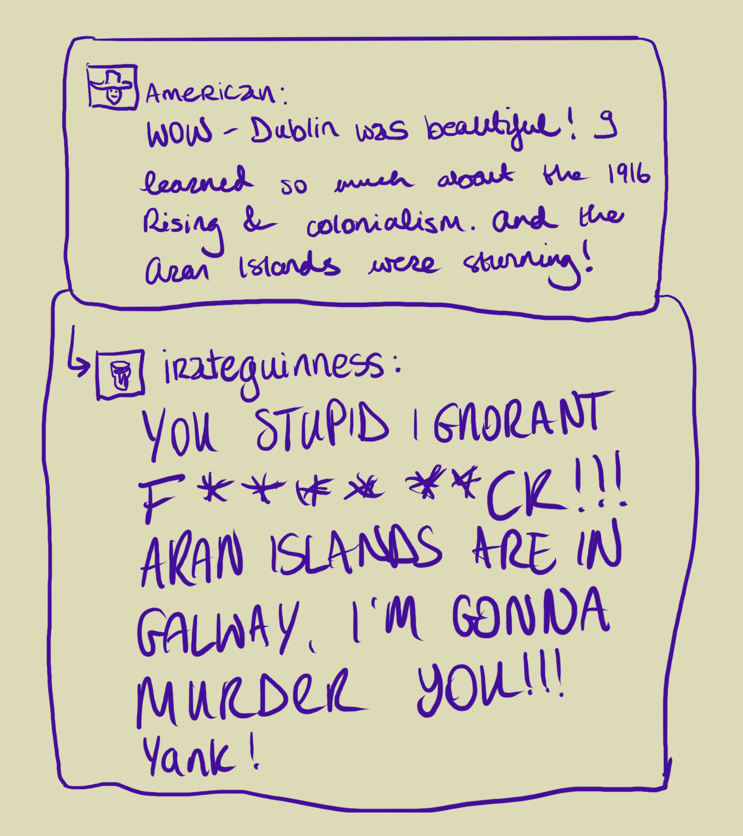 American:
WOW - Dublin was beautiful! I
learned so much about the 1916
Rising & colonialism. and the
Aran Islands were stunning!
irateguinness:
YOU STUPID IGNORANT
F**** **CK!!!
ARAN ISLANDS ARE IN
GALWAY. I'M GONNA
MURDER YOU!!!
Yank!